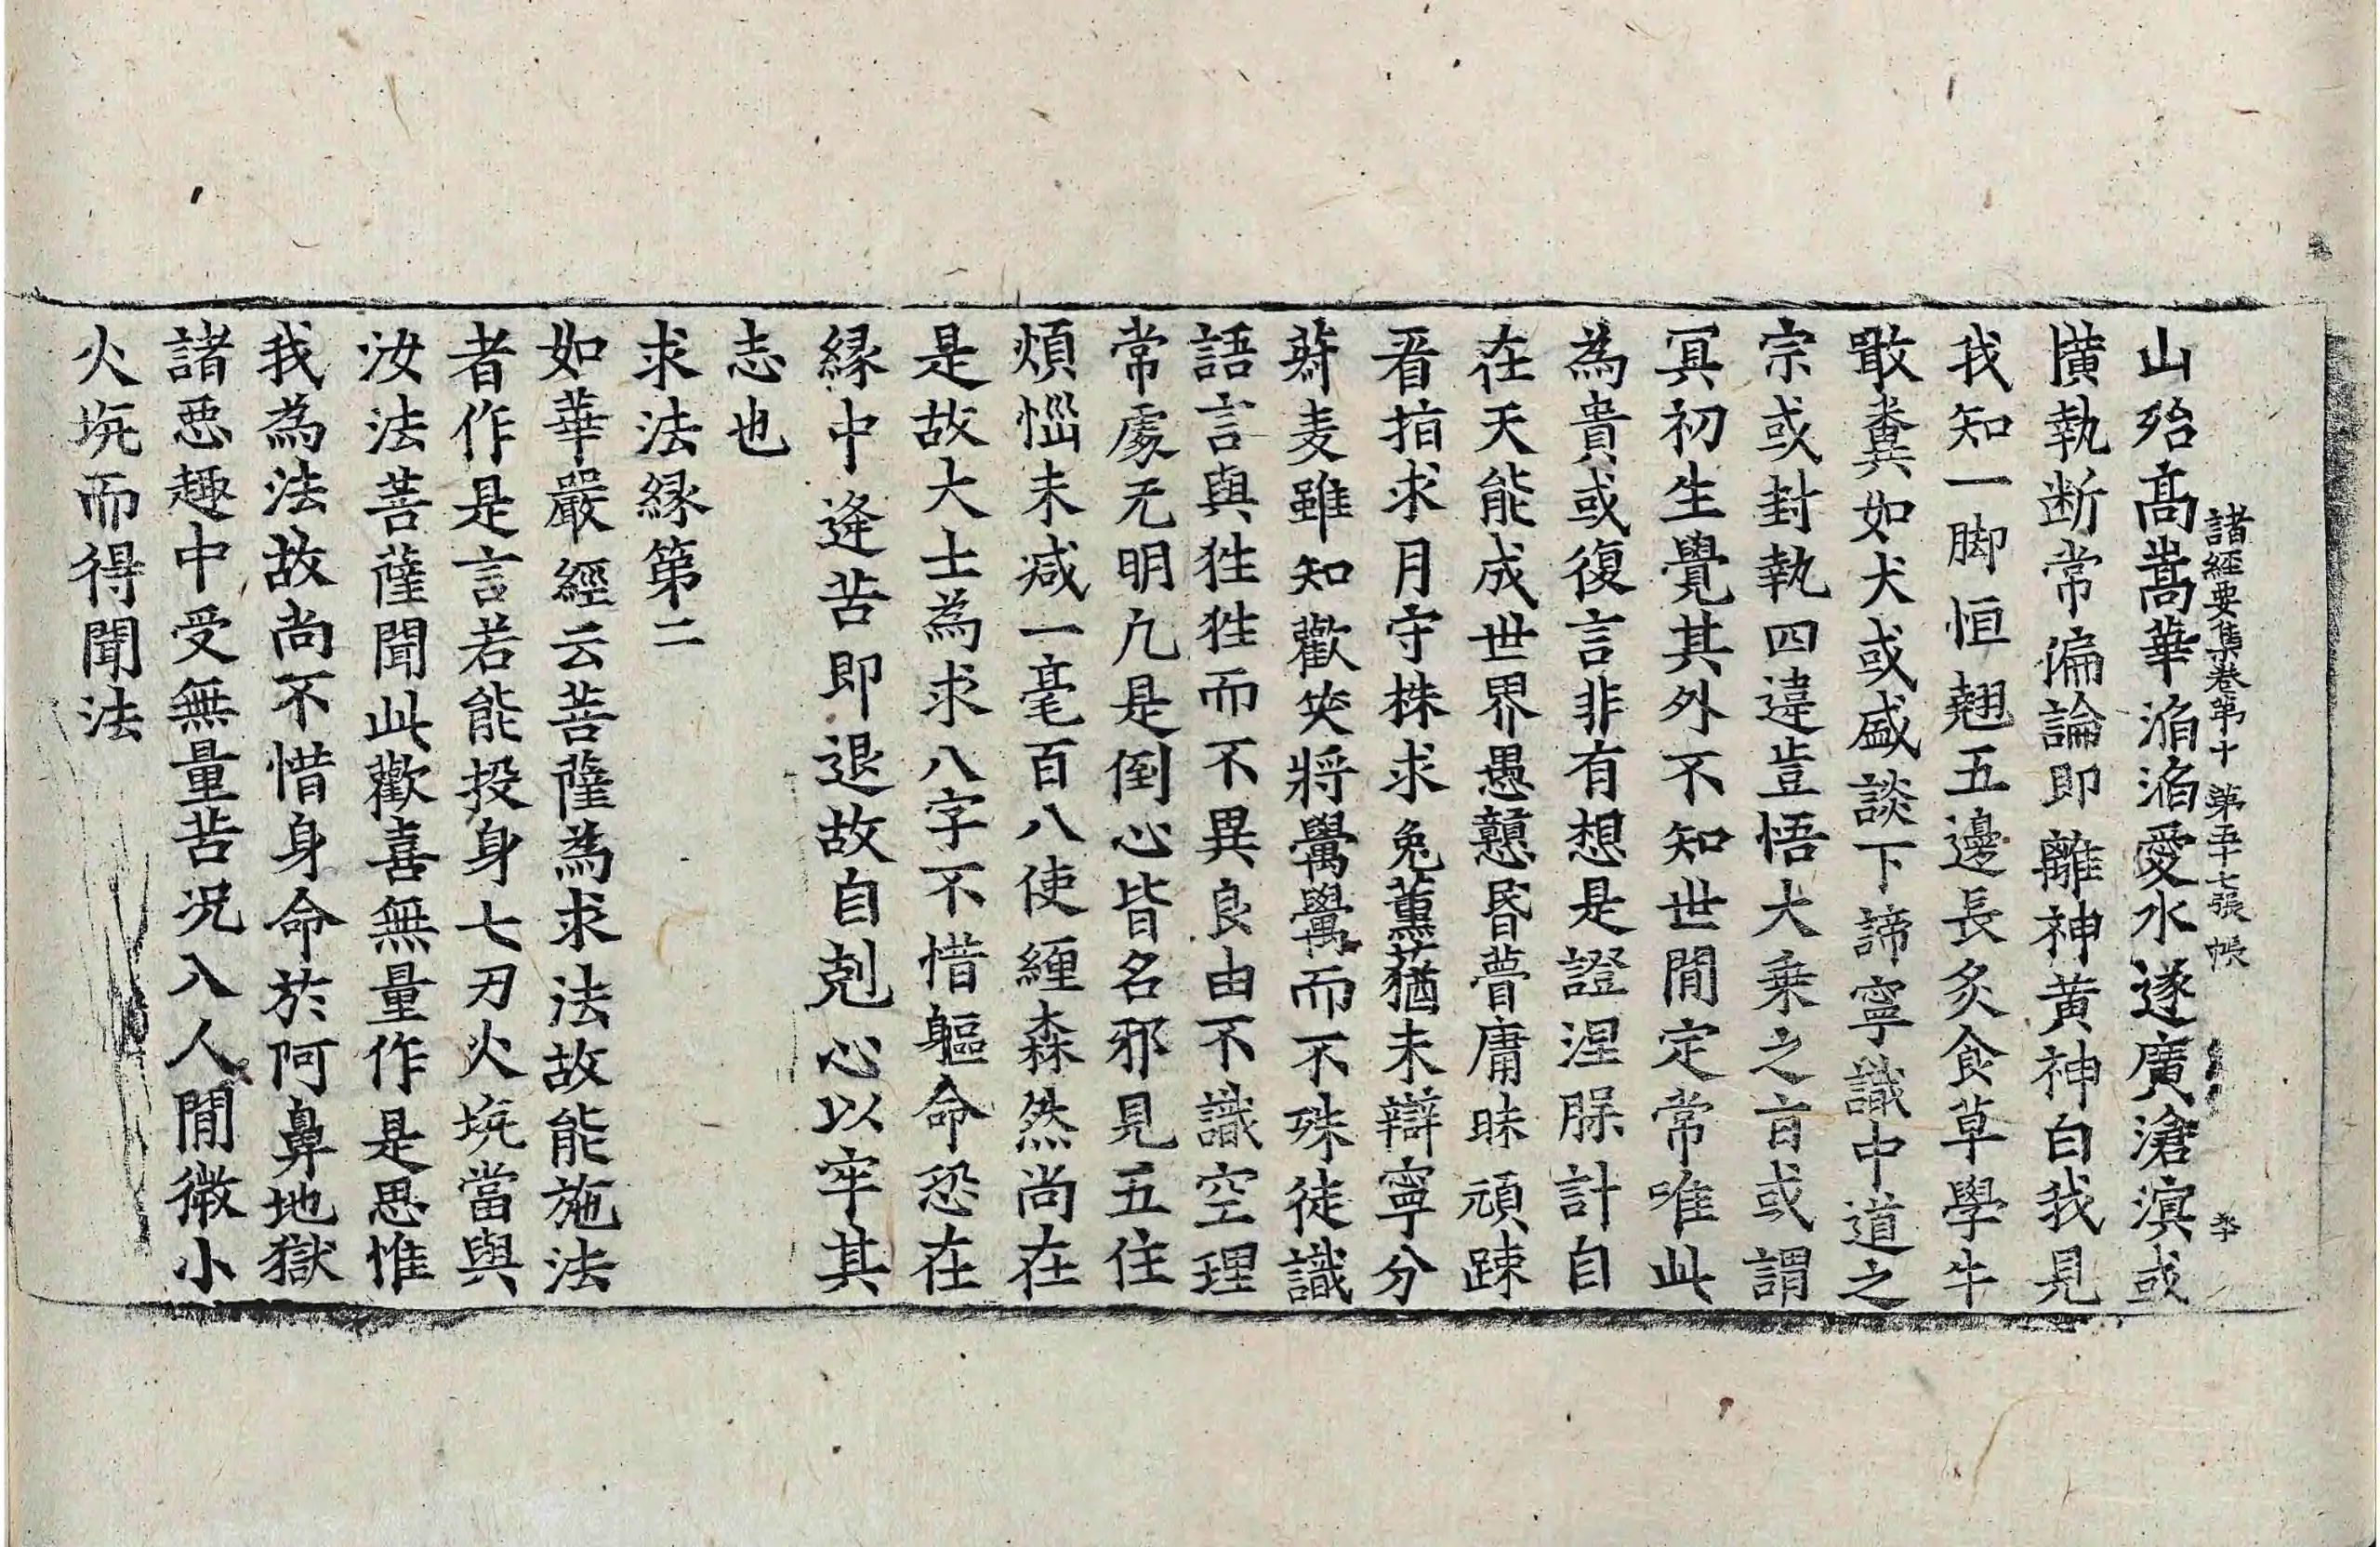 山殆高嵩華滔滔愛水遂廣滄溟或
諸經要集卷第十 第五十七張 帳
橫執断常偏論即離神黄神白我見
我知一脚恒翹五邊長炙食草學牛
噉糞如犬或盛談下諦寧識中道之
宗或封執四違豈悟大乗之㫖或謂
冥初生覺其外不知世間定常唯此
為貴或復言非有想是證涅脲計自
在天能成世界愚戇昬瞢庸昧頑踈
㸔指求月守株求兔薰蕕未辯寧分
菽麦雖知歡𥬇將䆪䆪而不殊徒識
語言與狌狌而不異良由不識空理
常處无明凢是倒心皆名邪見五住
煩惱未减一毫百八使纏森然尚在
是故大士為求八字不惜軀命恐在
縁中逢苦即退故自剋心以牢其
志也
求法縁第二
如華嚴經云菩薩為求法故能施法
者作是言若能投身七刃火坑當與
汝法菩薩聞此歡喜無量作是思惟
我為法故尚不惜身命於阿鼻地獄
諸惡趣中受無量苦况入人間微小
火坑而得聞法